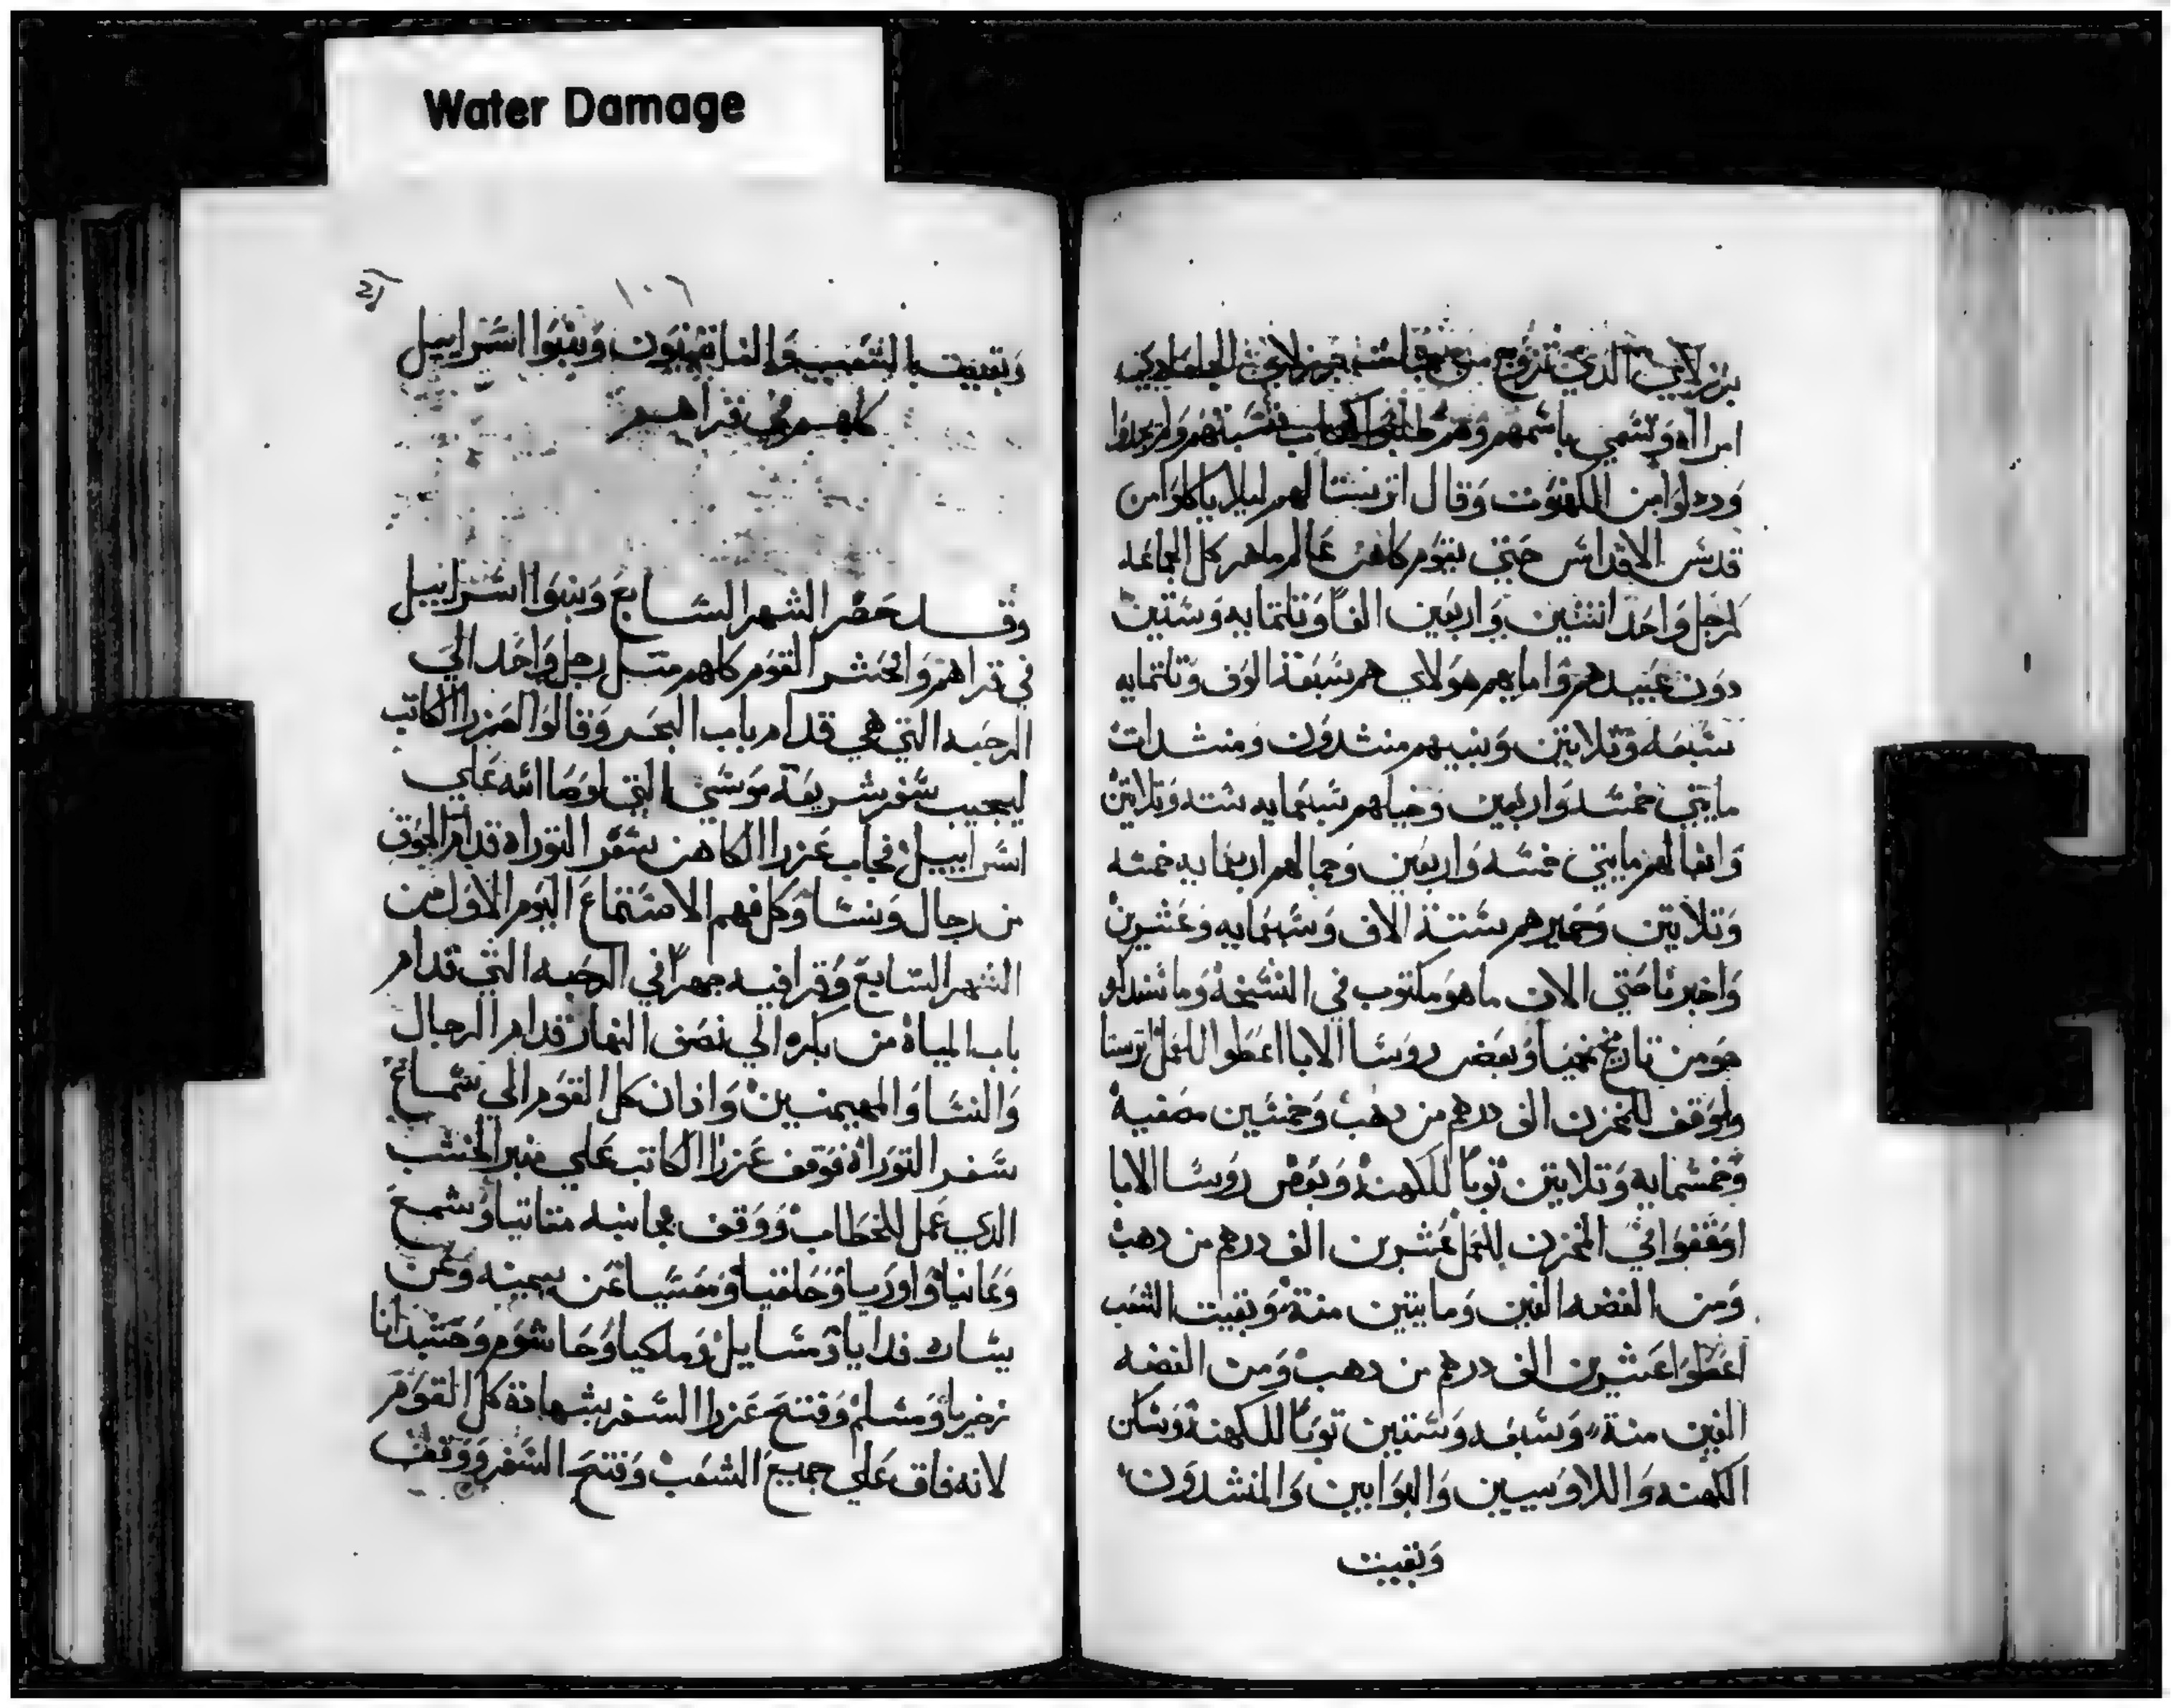 Water Damage
برزلاي الذي تزوج من برزلاي الجلعادي
امراه وتسمي باسمهم وهم طلبوا كتاب نسبتهم ولم يجدوا
وردلوا من الكهنوت وقال اترسستا لهم ليلا ياكلوا من
قدس الاقداس حتي يتوم كاهن عالم ماهر كل الجماعه
كرجل واحد اتنتين واربعين الفا وتلتمايه وستين
دون عبيدهم وامايهم هولاي هم سبعة الوف وتلتمايه
سبعه وتلاتين وبنيهم منشدون ومنشدات
مايتي خمسه واربعين وخيلهم سبعمايه سته وتلاتين
وابغالهم مايتي خمسه واربعين وجمالهم اربعمايه خمسه
وتلاتين وحميرهم ستة الاف وسبعمايه وعشرين
واخبرنا حتي الان ماهو مكتوب في النسخة وما نبتدلو
هو من تاريخ نحميا وبعض روسا الابا اعطوا للعمل اترستا
ولوقف للمخزن الف درهم من دهب وخمسين مصفية
وخمسمايه وتلاتين توبا للكهنة وبعض روسا الابا
اوقفوا في المخزن للعمل عشرين الف درهم من دهب
ومن الفضه الفين ومايتين منة وبقيت الشعب
اعطوا عشرين الف درهم من دهب ومن الفضه
الفين منة وسبعه وستين توبا للكهنة وسكن
الكهنه واللاويين والبوابين والمنشدون
وبقيت
١٠٦
وبقيت الشعب والناتينيون وبنوا اسراييل
كلهم في قراهم
وقد حضر الشهر السابع وبنوا اسراييل
في قراهم واحتشر القوم كلهم متل رجل واحد الي
الرحبه التي هي قدام باب البحر وقالوا لعزرا الكاتب
ليجيب سفر شريعة موسي التي اوصا الله علي
اسراييل فجاب عزرا الكاهن سفر التوراه قدام الجوق
من رجال ونسا وكل فهم الاستماع اليوم الاول من
الشهر السابع وقرا فيه جهرا في الرحبه التي قدام
باب المياة من بكره الي نصف النهار قدام الرجال
والنسا والمهيمنين واذان كل القوم الي سماع
سفر التوراة فوقف عزرا الكاتب علي منبر الخشب
الذي عمل للخطاب ووقف بجانبه متاتيا وشمع
وعانيا واوريا وحلقيا ومعسيا عن يمينه وعن
يساره فدايا ومسايل وملكيا وحاشوم وحسبدانا
زخريا ومسلم وفتح عزرا السفر بشهادة كل القوم
لانه فاق علي جميع الشعب وفتح السفر ووقف